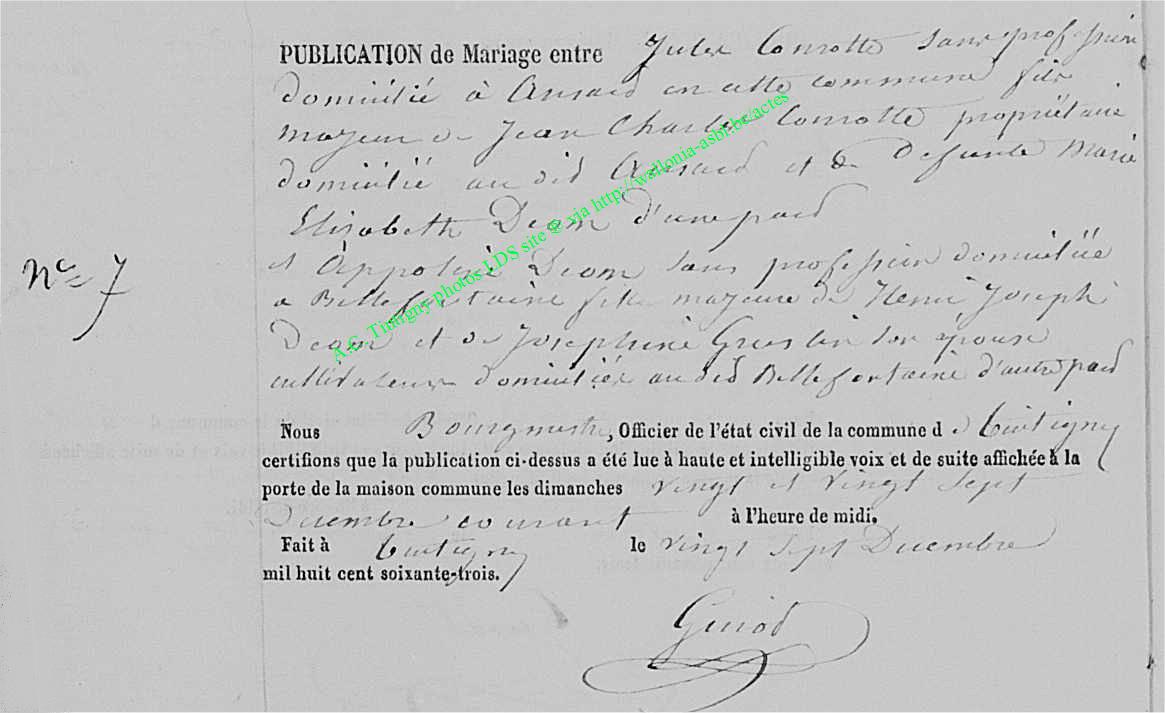 PUBLICATION de Mariage entre Jules Conrotte sans profession
domicilié à Ansart en cette commune fils
majeur de Jean Charles Conrotte propriétaire
domicilié au dit Ansart et de defunte Marie
Elisabeth Deom d'une part
et Appoline Deom sans profession domiciliée
a Bellefontaine fille majeure de Henri Joseph
Deom et de Josephine son épouse
cultivateurs domiciliés au dit Bellefontaine d'autre part
N° 7
Nous Bourgmestre, Officier de l'état civil de la commune d e Tintigny
certifions que la publication ci-dessus a été lue à haute et intelligible voix et de suite affichée à la
porte de la maison commune les dimanches vingt et vingt sept
Decembre courant à l'heure de midi.
Fait à Tintigny le vingt sept Decembre
mil huit cent soixante-trois.
Guiot
A.C. Tintigny-photos LDS site @ via http://wallonia-asbl.be/actes